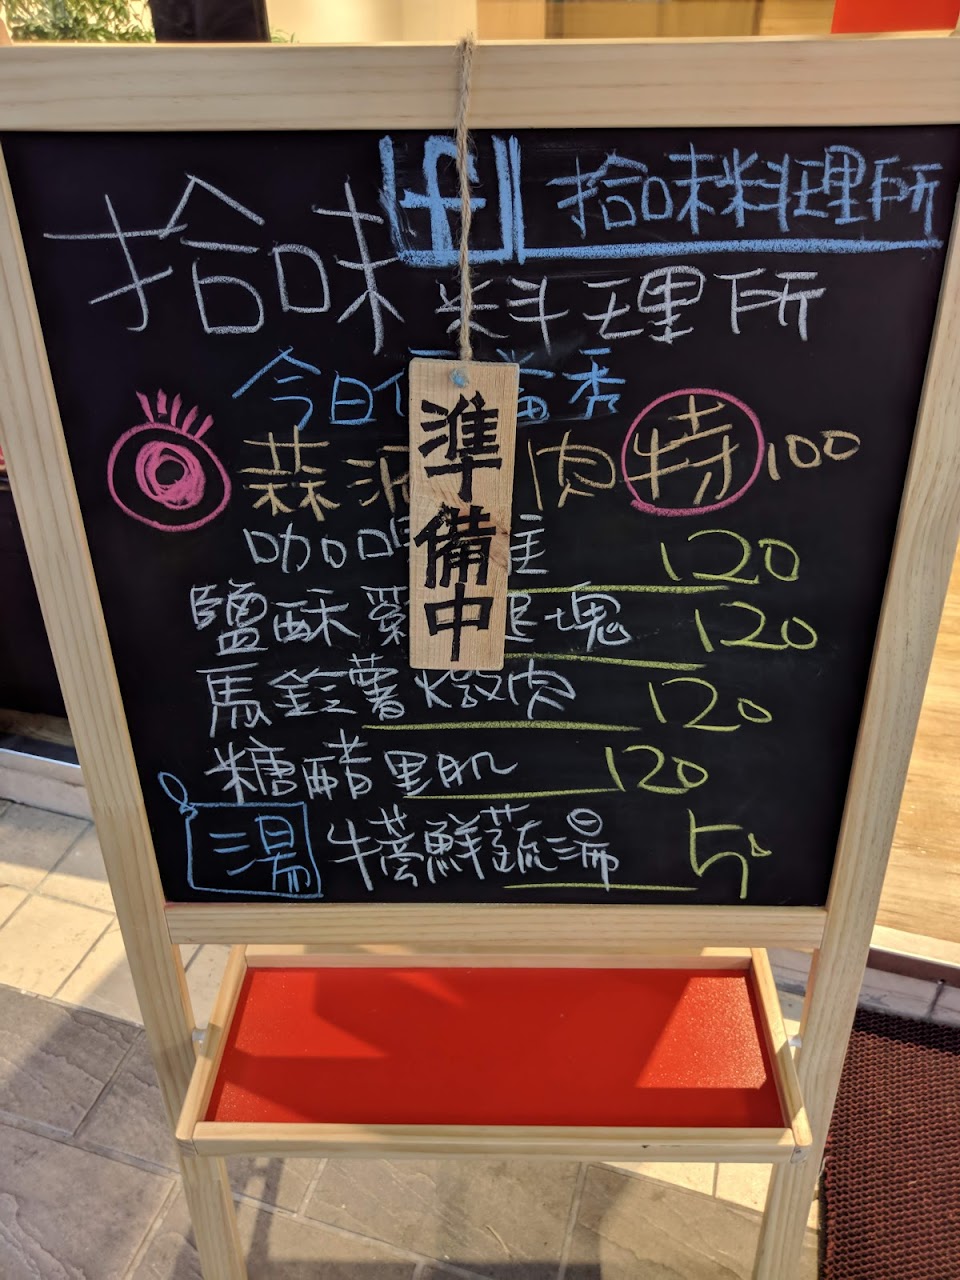 f 拾味料理所
拾味料理所
今日便當秀
蒜泥 肉 特 100
咖哩 120
鹽酥 塊 120
馬鈴薯燉肉 120
糖醋里肌 120
湯 牛蒡鮮蔬湯 50
準備中